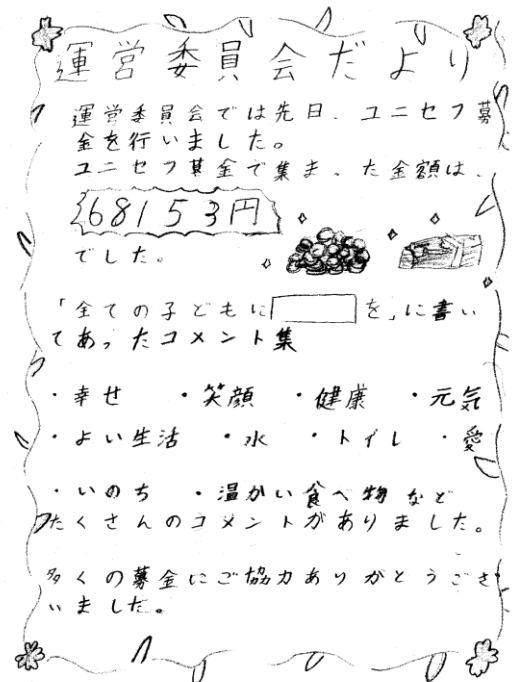 運営委員会だより
運営委員会では先日、ユニセフ募
金を行いました。
ユニセフ募金で集まった金額は、
68153円
でした。
「全ての子どもに を」に書い
てあったコメント集
・幸せ ・笑顔 ・健康 ・元気
・よい生活 ・水 ・トイレ ・愛
・いのち ・温かい食べ物など
たくさんのコメントがありました。
多くの募金にご協力ありがとうござ
いました。